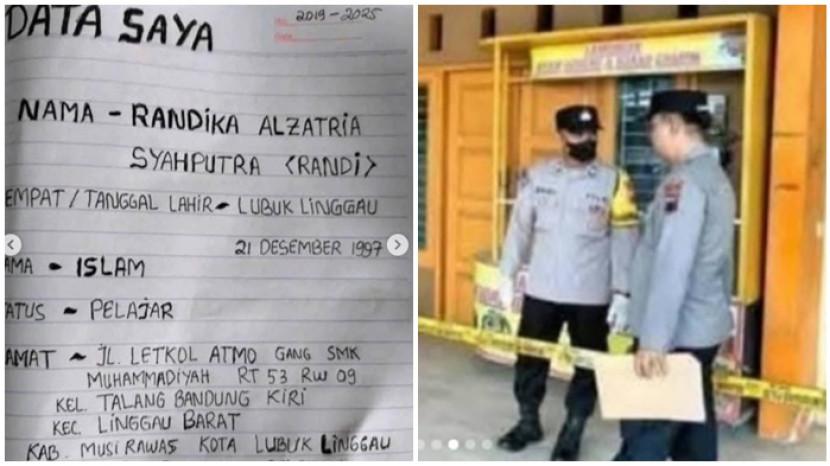 DATA SAYA
2019-2025
NAMA - RANDIKA ALZATRIA
SYAHPUTRA <RANDI>
EMPAT / TANGGAL LAHIR - LUBUK LINGGAU
21 DESEMBER 1997
AMA - ISLAM
ATUS - PELAJAR
AMAT ~ JL. LETKOL ATMO GANG SMK
MUHAMMADIYAH RT 53 RW 09
KEL. TALANG BANDUNG KIRI
KEC. LINGGAU BARAT
KAB. MUSI RAWAS KOTA LUBUK LINGGAU
LAMONGAN